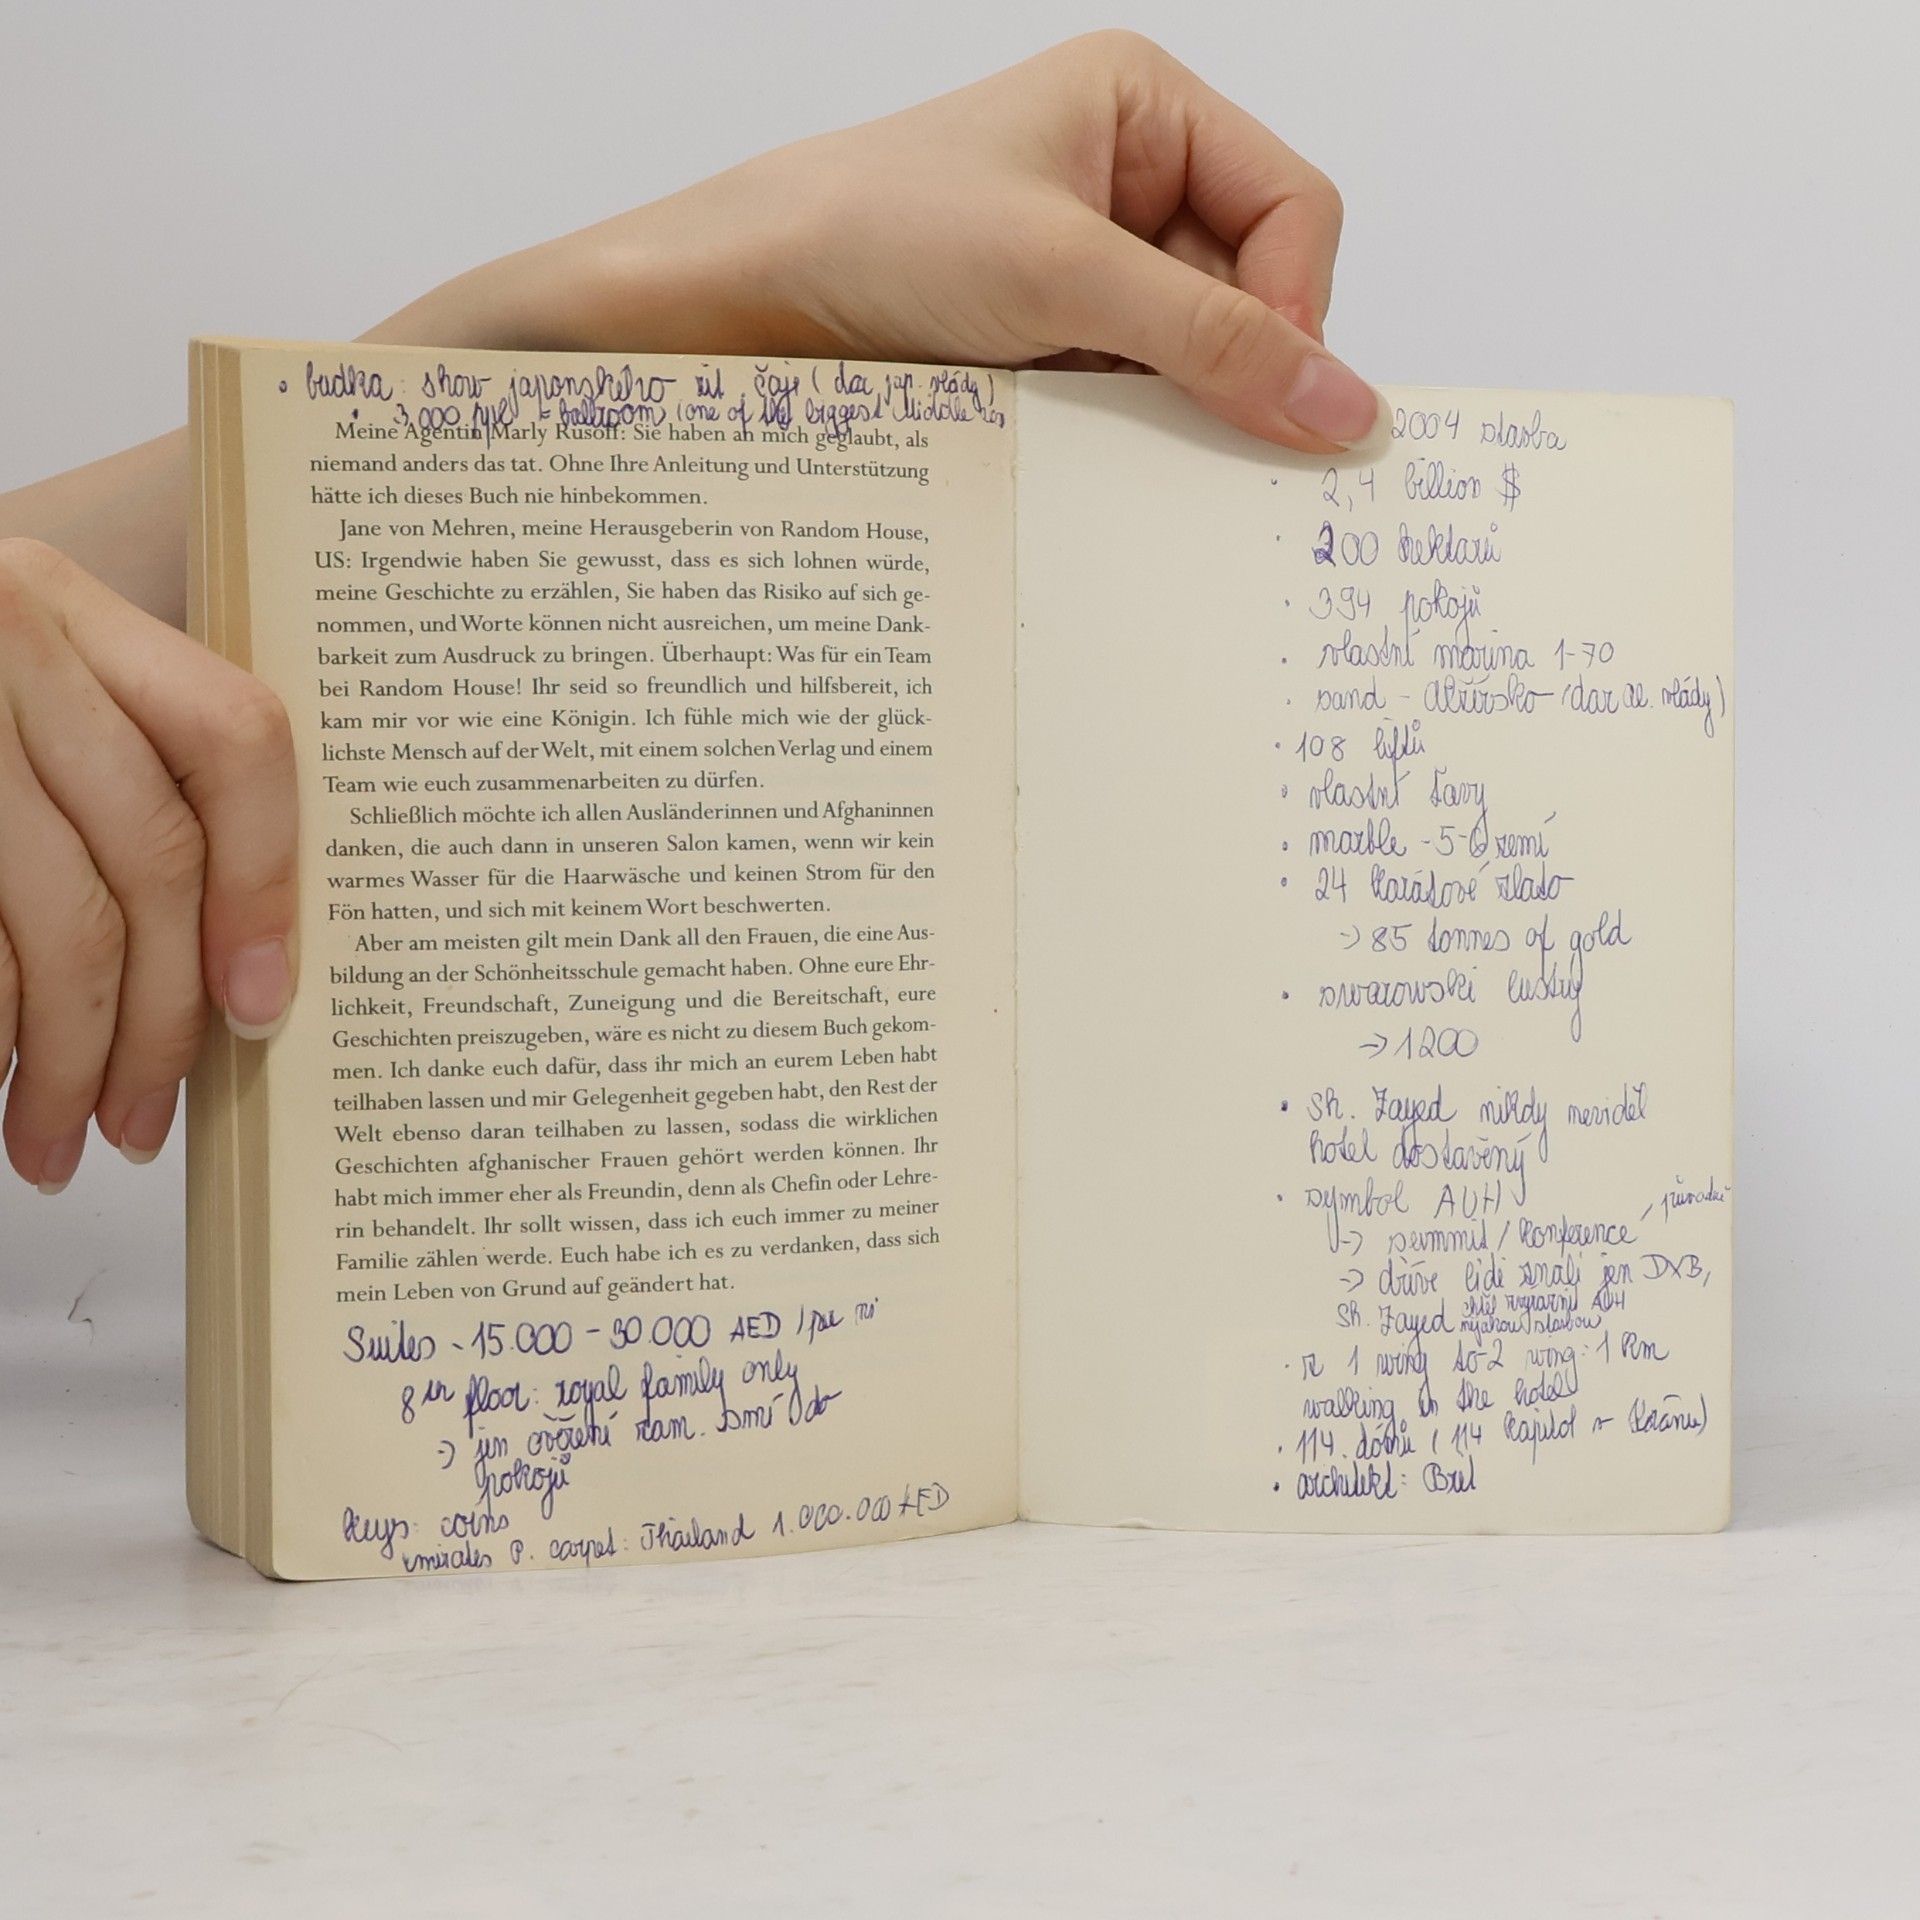 • budka: show japonského rit. čaje (dar jap. vlády)
• 3.000 ppl - ballroom (one of the biggest Middle
Meine Agentin Marly Rusoff: Sie haben an mich geglaubt, als
niemand anders das tat. Ohne Ihre Anleitung und Unterstützung
hätte ich dieses Buch nie hinbekommen.
Jane von Mehren, meine Herausgeberin von Random House,
US: Irgendwie haben Sie gewusst, dass es sich lohnen würde,
meine Geschichte zu erzählen, Sie haben das Risiko auf sich ge-
nommen, und Worte können nicht ausreichen, um meine Dank-
barkeit zum Ausdruck zu bringen. Überhaupt: Was für ein Team
bei Random House! Ihr seid so freundlich und hilfsbereit, ich
kam mir vor wie eine Königin. Ich fühle mich wie der glück-
lichste Mensch auf der Welt, mit einem solchen Verlag und einem
Team wie euch zusammenarbeiten zu dürfen.
Schließlich möchte ich allen Ausländerinnen und Afghaninnen
danken, die auch dann in unseren Salon kamen, wenn wir kein
warmes Wasser für die Haarwäsche und keinen Strom für den
Fön hatten, und sich mit keinem Wort beschwerten.
Aber am meisten gilt mein Dank all den Frauen, die eine Aus-
bildung an der Schönheitsschule gemacht haben. Ohne eure Ehr-
lichkeit, Freundschaft, Zuneigung und die Bereitschaft, eure
Geschichten preiszugeben, wäre es nicht zu diesem Buch gekom-
men. Ich danke euch dafür, dass ihr mich an eurem Leben habt
teilhaben lassen und mir Gelegenheit gegeben habt, den Rest der
Welt ebenso daran teilhaben zu lassen, sodass die wirklichen
Geschichten afghanischer Frauen gehört werden können. Ihr
habt mich immer eher als Freundin, denn als Chefin oder Lehre-
rin behandelt. Ihr sollt wissen, dass ich euch immer zu meiner
Familie zählen werde. Euch habe ich es zu verdanken, dass sich
mein Leben von Grund auf geändert hat.
Suites ~ 15.000 - 30.000 AED / per
8th floor: royal family only
→ jen ověření zam. smí do
pokojů
Keys: coins
Emirates P. carpet: Thailand 1.000.000 AED
2004 stavba
• 2,4 billion $
• 200 hektarů
• 394 pokojů
• vlastní marina 1-70
• sand - Alžírsko (dar al. vlády)
• 108 liftů
• vlastní tavy
• marble - 5-6 zemí
• 24 karátové zlato
→ 85 tonnes of gold
• swarowski lustry
→ 1200
• Sh. Zayed nikdy neviděl
hotel dostavěný
• symbol AUH
→ summit / konference
→ dříve lidi znali jen DXB,
Sh. Zayed chtěl zvýraznit AUH
nějakou stavbou
• z 1 wing to 2 wing: 1 km
walking in the hotel
• 114 dómů (114 kapitol v Koránu)
• architekt: Brit